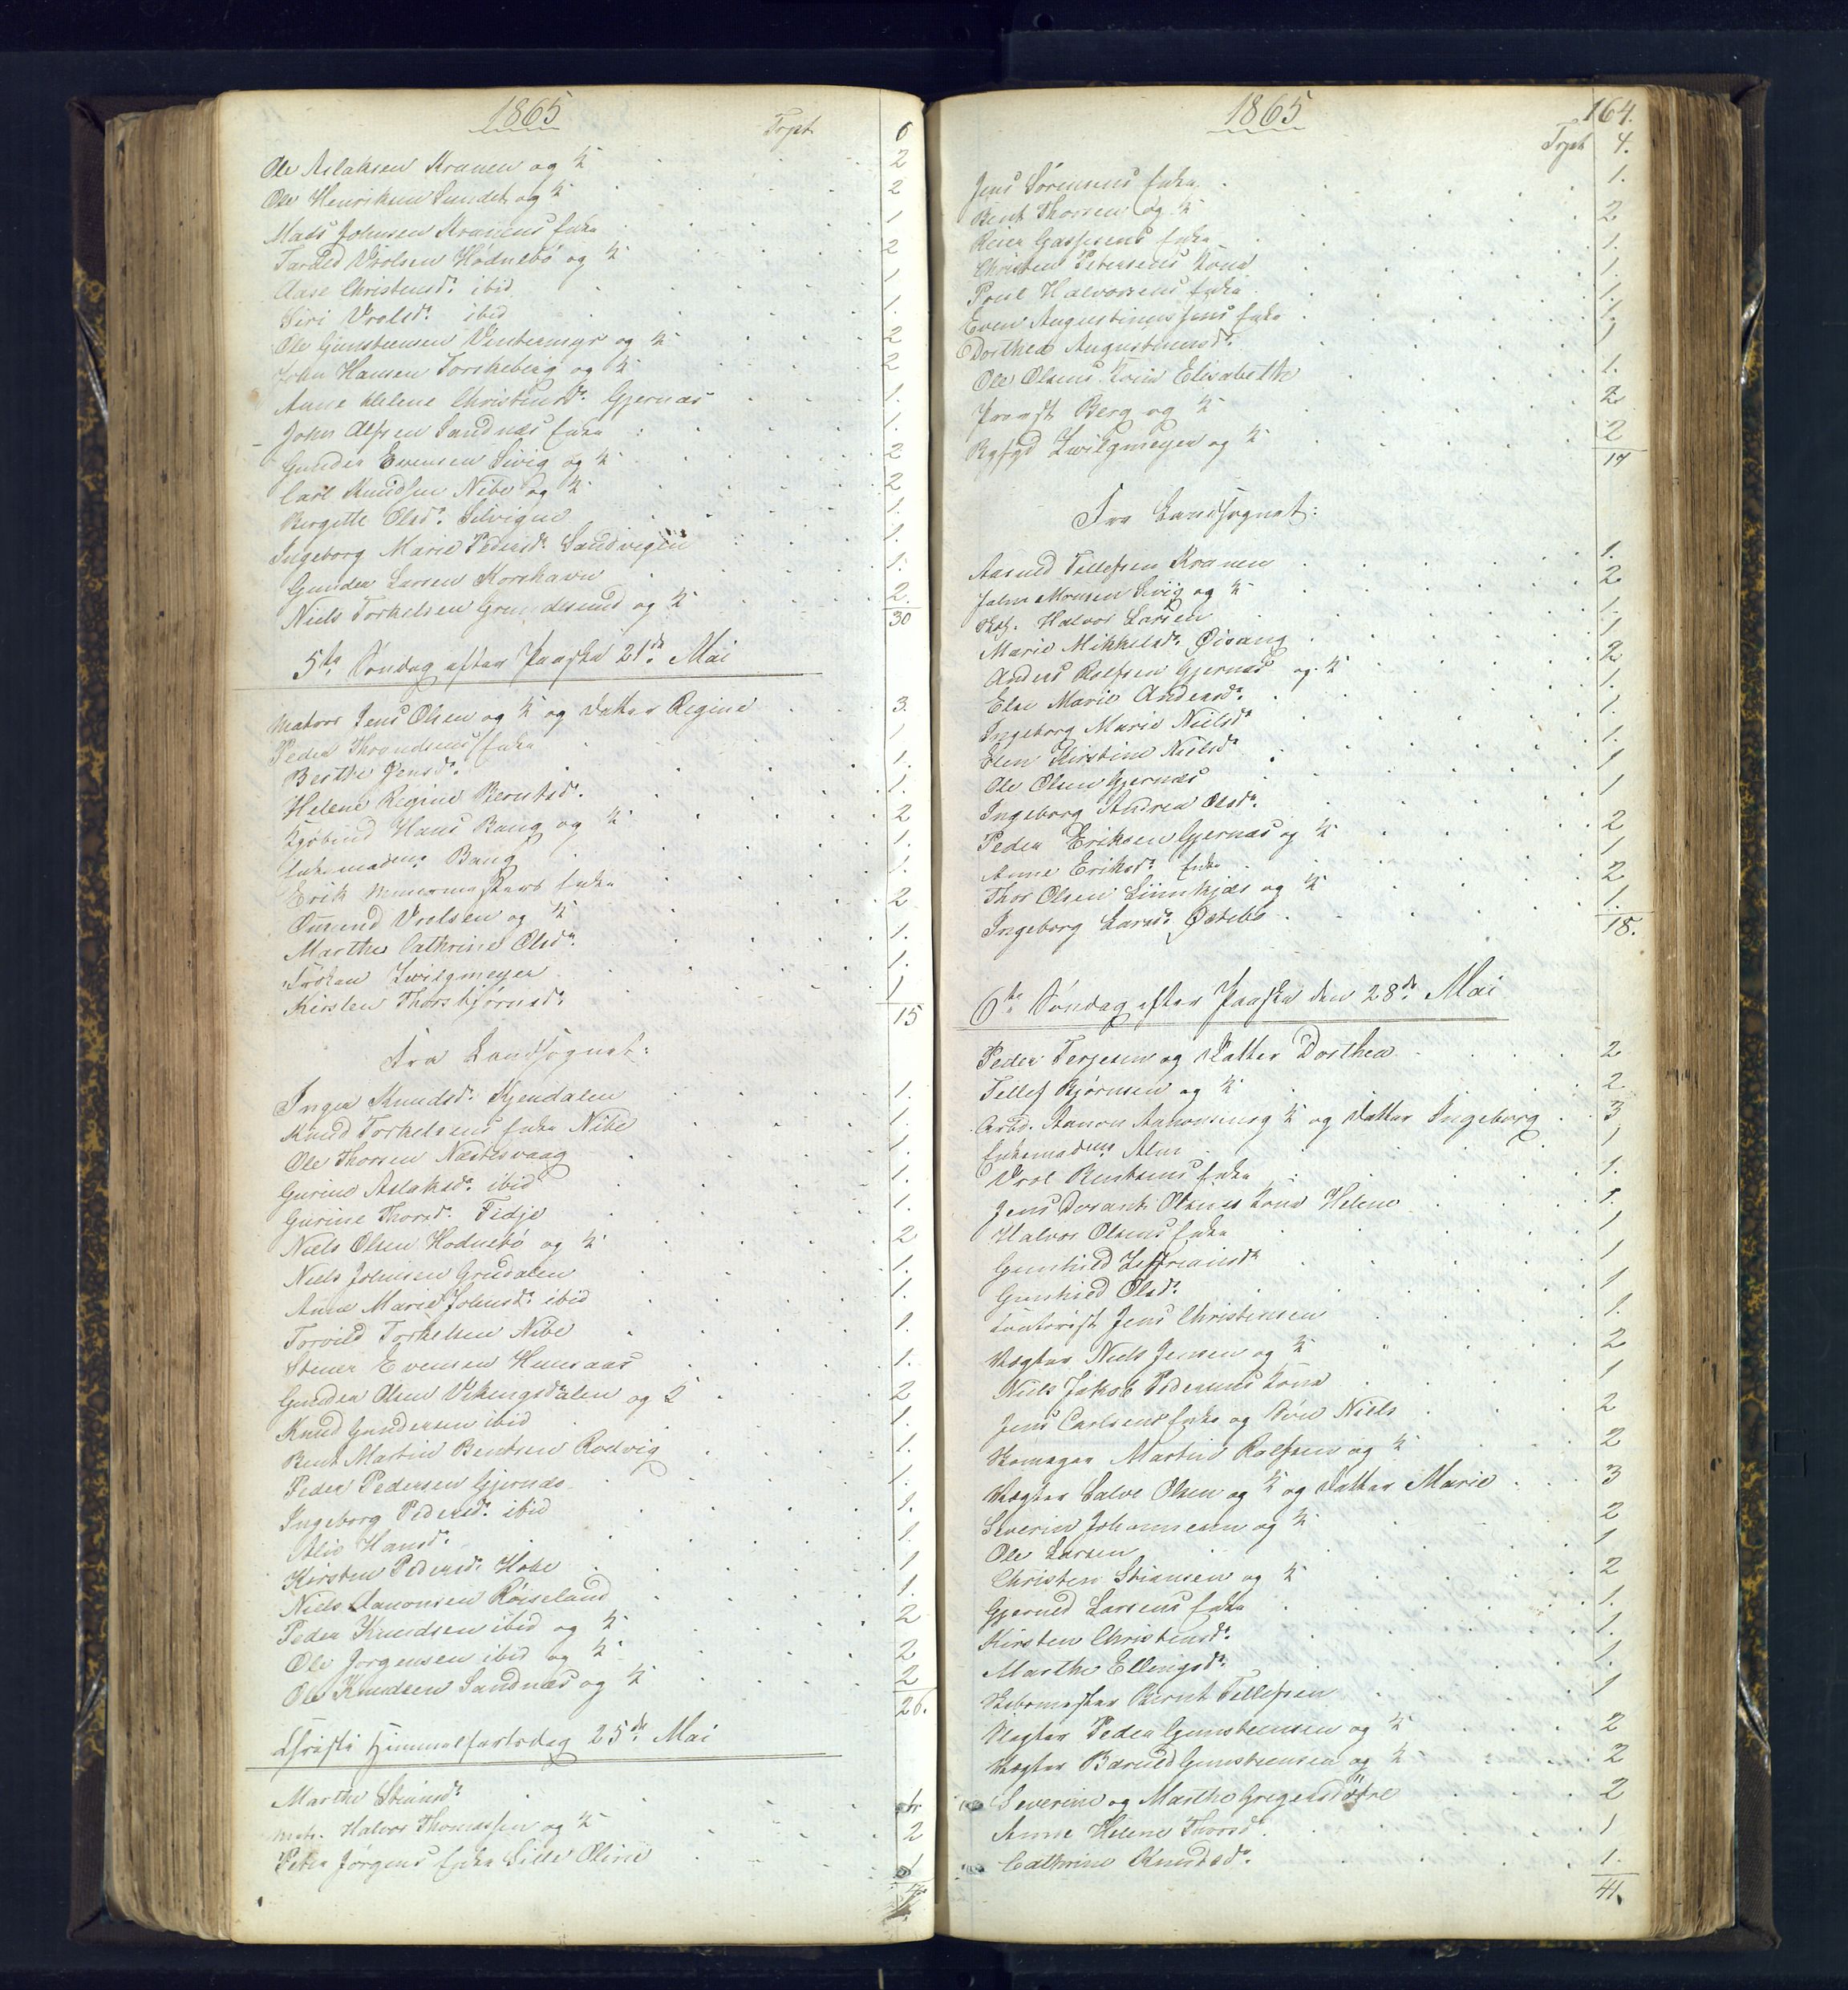 1865
Trpt 6
Ole Aslaksen Kranen og K 2
Ole Henriksen Sundet og K 2
Mads Johnsen Kranens Enke 1
Tarald Vrolsen Hødnebø og K 2
Aase Christensd. ibid 1
Siri Vrolsd. ibid 1.
Ole Gunstensen Ventermyr og K 2
John Hansen Torskeberg og K 2
Anne Helene Christensd. Gjernæs 1.
John Alfsen Sandnæs Enke 1.
Gunder Evensen Sivig og K 2
Carl Knudsen Nibe og K 2
Birgitte Olsd. Silvigen 1.
Ingeborg Marie Pedersd. Sandvigen 1.
Gunder Larsen Korshavn 1.
Niels Torkelsen Grundesund og K 2.
30
5te Søndag efter Paaske 21de Mai
Matros Jens Olsen og K og Datter Regine 3.
Peder Throndsens Enke 1
Berthe Jensd. 1.
Helene Regine Berntsd. 1.
Kjøbmd Hans Bang og K 2
Enkemadme Bang 1.
Erik Murermesters Enke 1.
Omund Vrolsen og K 2
Marthe Cathrine Olsd. 1.
Frøken Zwilgmeyer 1.
Kirsten Thorbjørnsd. 1
15
Fra Landsognet:
Inger Knudsd. Kjendalen 1.
Knud Torkelsens Enke Nibe 1.
Ole Thorsen Næstesvaag 1.
Gurine Aslaksd. ibid 1.
Gurine Thorsd. Fidje 1.
Niels Olsen Hødnebø og K 2
Niels Johnsen Grudalen 1.
Anne Marie Johnsd. ibid 1.
Torvild Torkelsen Nibe 1.
Stener Evensen Humaas 1.
Gunder Olsen Vikingsdalen og K 2
Knud Gundersen ibid 1.
Bent Martin Bentsen Rødvig 1.
Peder Pedersen Gjernæs 1.
Ingeborg Pedersd. ibid 1.
Alis Hansd. 1.
Kirsten Pedersd. Hobe 1
Niels Aanonsen Røiseland 1.
Peder Knudsen ibid og K 2
Ole Jørgensen ibid og K 2
Ole Knudsen Sandnæs og K 2
26.
Christi Himmelfartsdag 25de Mai
Marthe Steensd. 1.
Matr. Halvor Thomassen og K 2
Peter Jørgens Enke Sille Oline 1
4.
1865 164.
Trpt 4.
Jens Sørensens Enke 1.
Bent Thorsen og K 2
Reier Gassesens Enke 1.
Christen Petersens Kone 1.
Poul Halvorsens Enke 1.
Even Augustinussens Enke 1.
Dorthea Augustinusd. 1
Ole Olsens Kone Elisabeth 1.
Provst Berg og K 2
Byfgd Zwilgmeyer og K 2
17
Fra Landsognet:
Aasuld Tellefsen Kranen 1.
John Monsen Sivig og K 2
Halvor Larsen 1.
Marie Mikkelsd. Øivang 1
Anders Rolfsen Gjernæs og K 2
Else Marie Andersd. 1.
Ingeborg Marie Nielsd. 1.
Elen Kirstine Nielsd. 1.
Ole Olsen Gjernæs 1
Ingeborg Andrea Olsd. 1
Peder Eriksen Gjernæs og K 2
Anne Eriksd. Enke 1
Thor Olsen Liimkjær og K 2
Ingeborg Larsd. Østebø 1.
18.
6te Søndag efter Paaske den 28de Mai
Peder Terjesen og Datter Dorthea 2
Tellef Bjørnsen og K 2
Arbd. Aanon Aanonsen og K og Datter Ingeborg 3
Enkemadme Alm 1
Vrol Bentsens Enke 1.
Jens Dorant Olsens Kone Helene 1.
Halvor Olsens Enke 1
Gunhild Zeffriansd. 1
Gunhild Olsd. 1
Kontorist Jens Christensen 1.
Vægter Niels Jensen og K 2
Niels Jakob Pedersens Kone 1
Jens Carlsens Enke og Søn Niels 2
Skomager Martin Rolfsen og K 2
Vægter Salve Olsen og K og Datter Marie 3
Severin Johannesen og K 2
Ole Larsen 1
Christen Stiansen og K 2
Gjeruld Larsens Enke 1.
Kirsten Christensd. 1.
Marthe Ellingsd. 1.
Skibsmester Bernt Tellefsen 1
Vægter Peder Gunstensen og K 2
Vægter Baruld Gunstensen og K 2
Severine og Marthe Gregersdøtre 2
Anne Helene Thorsd. 1
Cathrine Knudsd. 1.
41.